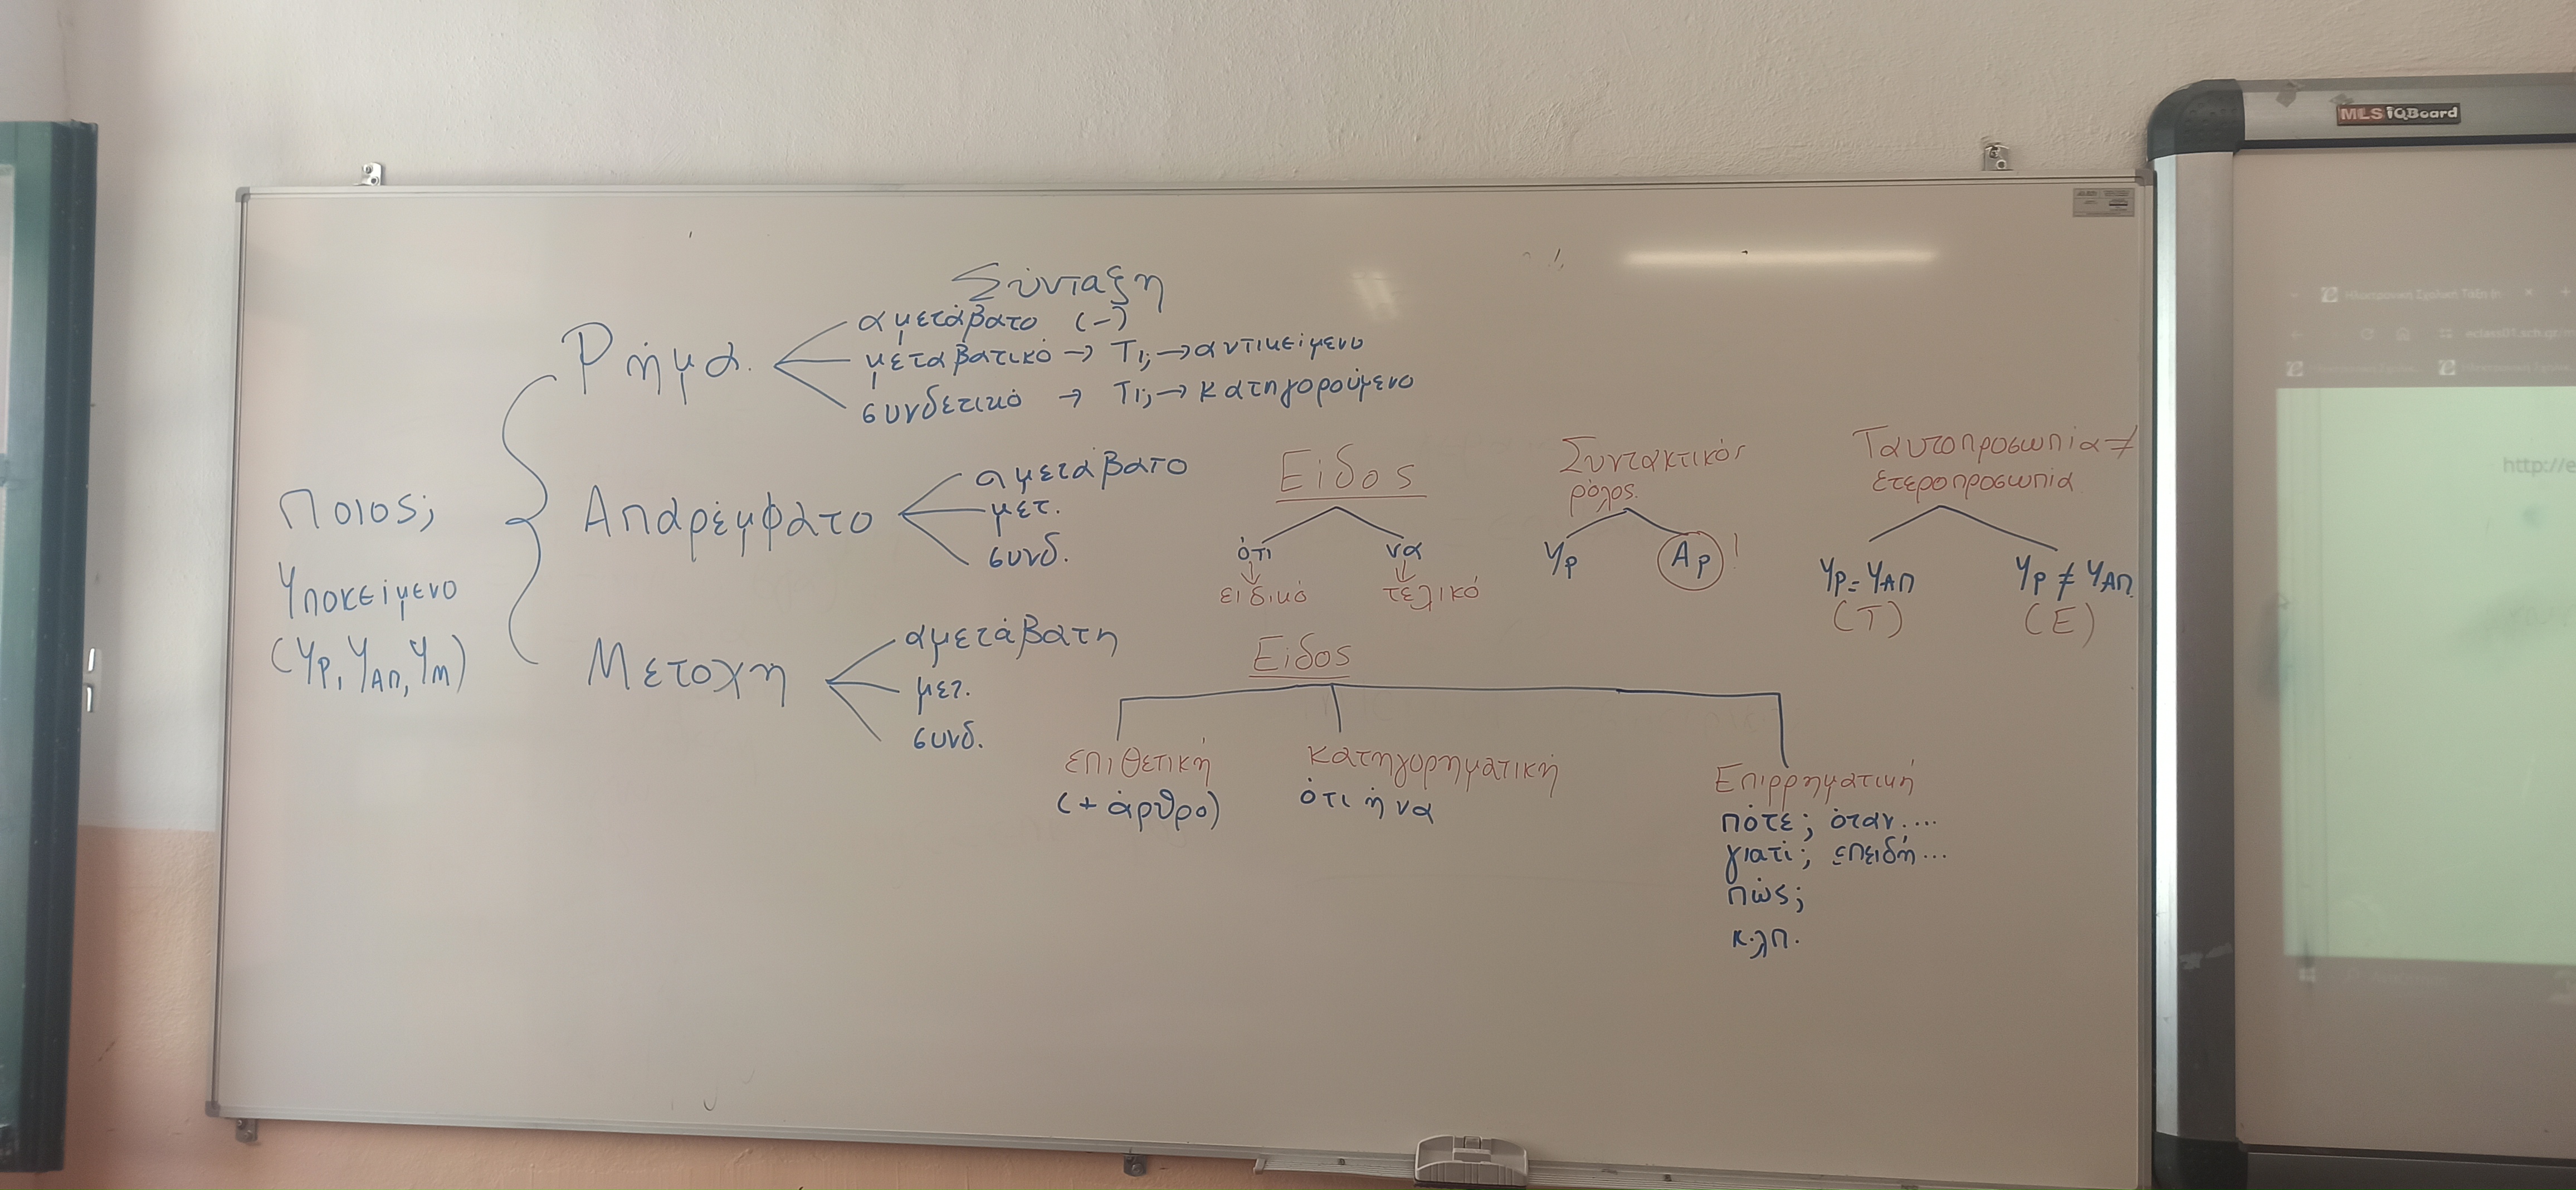 Σύνταξη
Ποιος;
Υποκείμενο
(Υρ, Υαπ, Υμ)
Ρήμα.
αμετάβατο (-)
μεταβατικό → Τι; → αντικείμενο
συνδετικό → Τι; → κατηγορούμενο
Απαρέμφατο
αμετάβατο
μετ.
συνδ.
Είδος
ότι
ειδικό
να
τελικό
Συντακτικός
ρόλος.
Υρ
Αρ !
Ταυτοπροσωπία ≠
ετεροπροσωπία
Υρ = Υαπ
(Τ)
Υρ ≠ Υαπ.
(Ε)
Μετοχή
αμετάβατη
μετ.
συνδ.
Είδος
επιθετική
(+ άρθρο)
κατηγορηματική
ότι ή να
Επιρρηματική
πότε; όταν....
γιατί; επειδή...
πώς;
κ.λπ.
MLS iQBoard
Ηλεκτρονική Σχολική Τάξη
http://e